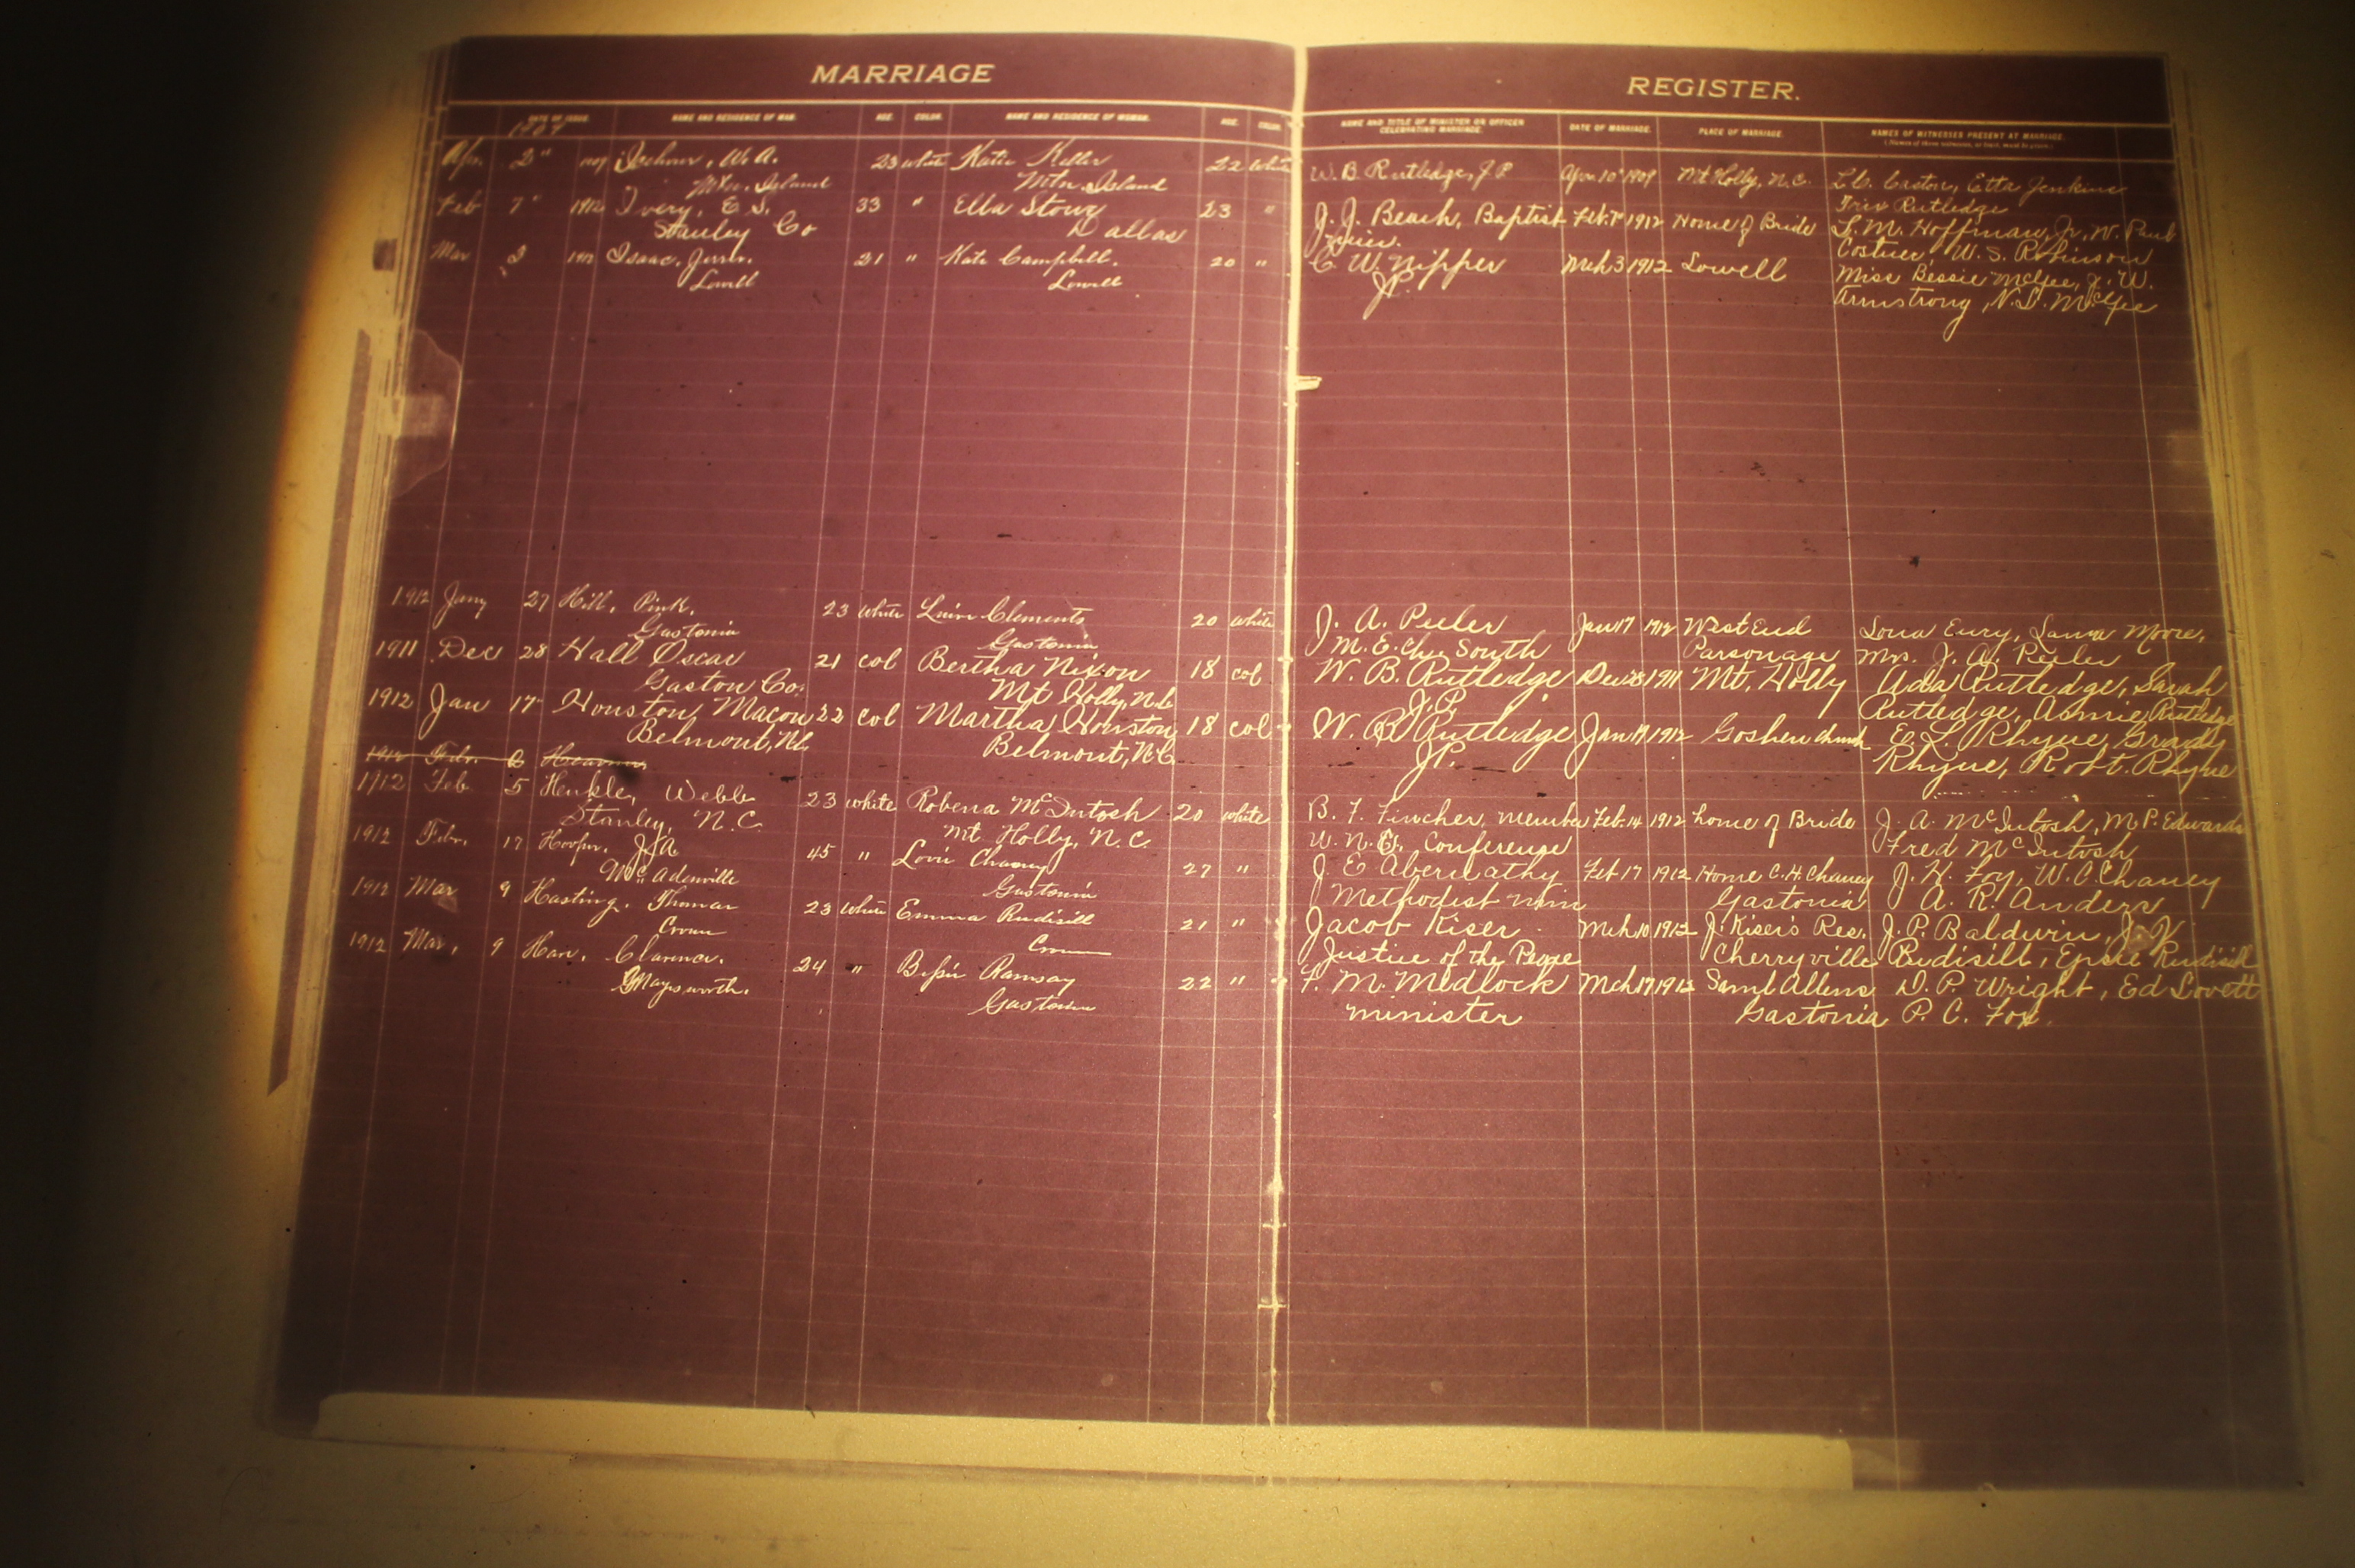 MARRIAGE REGISTER.
DATE OF ISSUE. NAME AND RESIDENCE OF MAN. AGE. COLOR. NAME AND RESIDENCE OF WOMAN. AGE. COLOR. NAME AND TITLE OF MINISTER OR OFFICER CELEBRATING MARRIAGE. DATE OF MARRIAGE. PLACE OF MARRIAGE. NAMES OF WITNESSES PRESENT AT MARRIAGE.
1909
Apr. 2" 1909 W. A. 23 white Katie Keller 22 White W. B. Rutledge, J P Apr 10 1909 Mt Holly, N.C. L. C. Caston, Etta Jenkins
Mtn. Island Mtn. Island Rutledge
Feb 7" 1912 Ivery, E. S. 33 " Ella Stowe 23 " J. J. Beach, Baptist Feb. 7 1912 Home of Bride L. M. Hoffman, Jr, W. Paul
Stanley Co Dallas Costner, W. S. Robinson
Mar 2 1912 Isaac, 21 " Kate Campbell. 20 " C. W. Nipper Mch 3 1912 Lowell Miss Bessie McGee, J. W.
Lowell Lowell JP. Armstrong, N. L. McGee
1912 Jany 27 Hill, Pink. 23 White Clements 20 white J. A. Peeler Jan 17 1912 West End Eury, Moore,
Gastonia Gastonia M. E. Ch. South Parsonage Mrs. J. A. Peeler
1911 Dec 28 Hall Oscar 21 col Bertha Nixon 18 col W. B. Rutledge Dec 28 1911 Mt. Holly Ada Rutledge, Sarah
Gaston Co. Mt Holly, N.C. J.P. Rutledge, Rutledge
1912 Jan 17 Houston Macon 22 col Martha Houston 18 col W. B. Rutledge Jan 1912 Goshen church E. L. Rhyne Grady
Belmont, N.C. Belmont, N.C. J.P. Rhyne, Robt. Rhyne
Febr. 6
1912 Feb 5 Henkle, Webb 23 white Robena McIntosh 20 white B. F. Fincher, member Feb. 14 1912 home of Bride J. A. McIntosh, M. P. Edwards
Stanley, N.C. Mt Holly, N.C. W. N. C. Conference Fred McIntosh
1912 Febr. 17 Hooper, J A 45 " Chaney 27 " J. E Abernathy Feb 17 1912 Home C. H. Chaney J. H. Foy, W. C Chaney
McAdenville Gastonia Methodist min Gastonia A. R. Anders
1912 Mar 9 Hasting, Thomas 23 White Emma Rudisill 21 " Jacob Kiser Mch 10 1912 J. Kiser's Res. J. P. Baldwin,
Justice of the Peace Cherryville Rudisill, Rudisill
1912 Mar, 9 Clarence. 24 " Bessie Ramsay 22 " F. M. Medlock Mch 17 1912 Saml Allens D. P. Wright, Ed Lovett
Mayesworth. Gastonia minister Gastonia P. C. Fox.